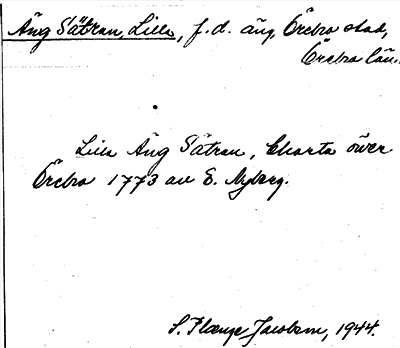 Äng Sätran, Lilla, f.d. äng, Örebro stad,
Örebro län.
Lilla Äng Sätran, Charta öwer
Örebro 1773 av E. Nyberg.
S. Jacobsson, 1944.